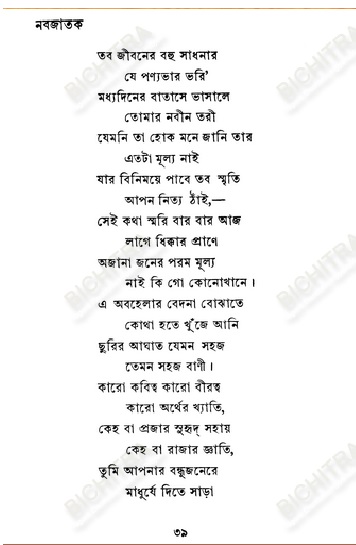 নবজাতক
তব জীবনের বহু সাধনার
যে পণ্যভার ভরি’
মধ্যদিনের বাতাসে ভাসালে
তোমার নবীন তরী
যেমনি তা হোক মনে জানি তার
এতটা মূল্য নাই
যার বিনিময়ে পাবে তব স্মৃতি
আপন নিত্য ঠাঁই,—
সেই কথা স্মরি বার বার আজ
লাগে ধিক্কার প্রাণে
অজানা জনের পরম মূল্য
নাই কি গো কোনোখানে।
এ অবহেলার বেদনা বোঝাতে
কোথা হতে খুঁজে আনি
ছুরির আঘাত যেমন সহজ
তেমন সহজ বাণী।
কারো কবিত্ব কারো বীরত্ব
কারো অর্থের খ্যাতি,
কেহ বা প্রজার সুহৃদ্ সহায়
কেহ বা রাজার জ্ঞাতি,
তুমি আপনার বন্ধুজনেরে
মাধুর্যে দিতে সাড়া
৩৯
BICHITRA
BICHITRA
BICHITRA
BICHITRA
BICHITRA
BICHITRA
BICHITRA
BICHITRA